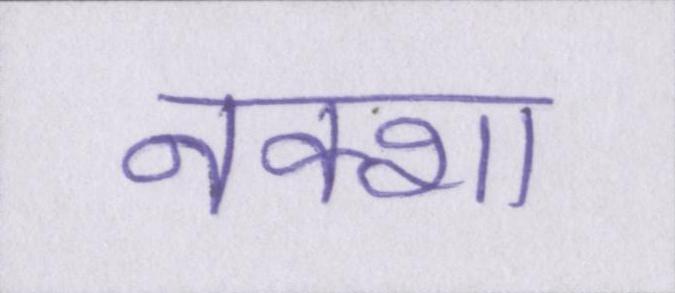 नक्शा